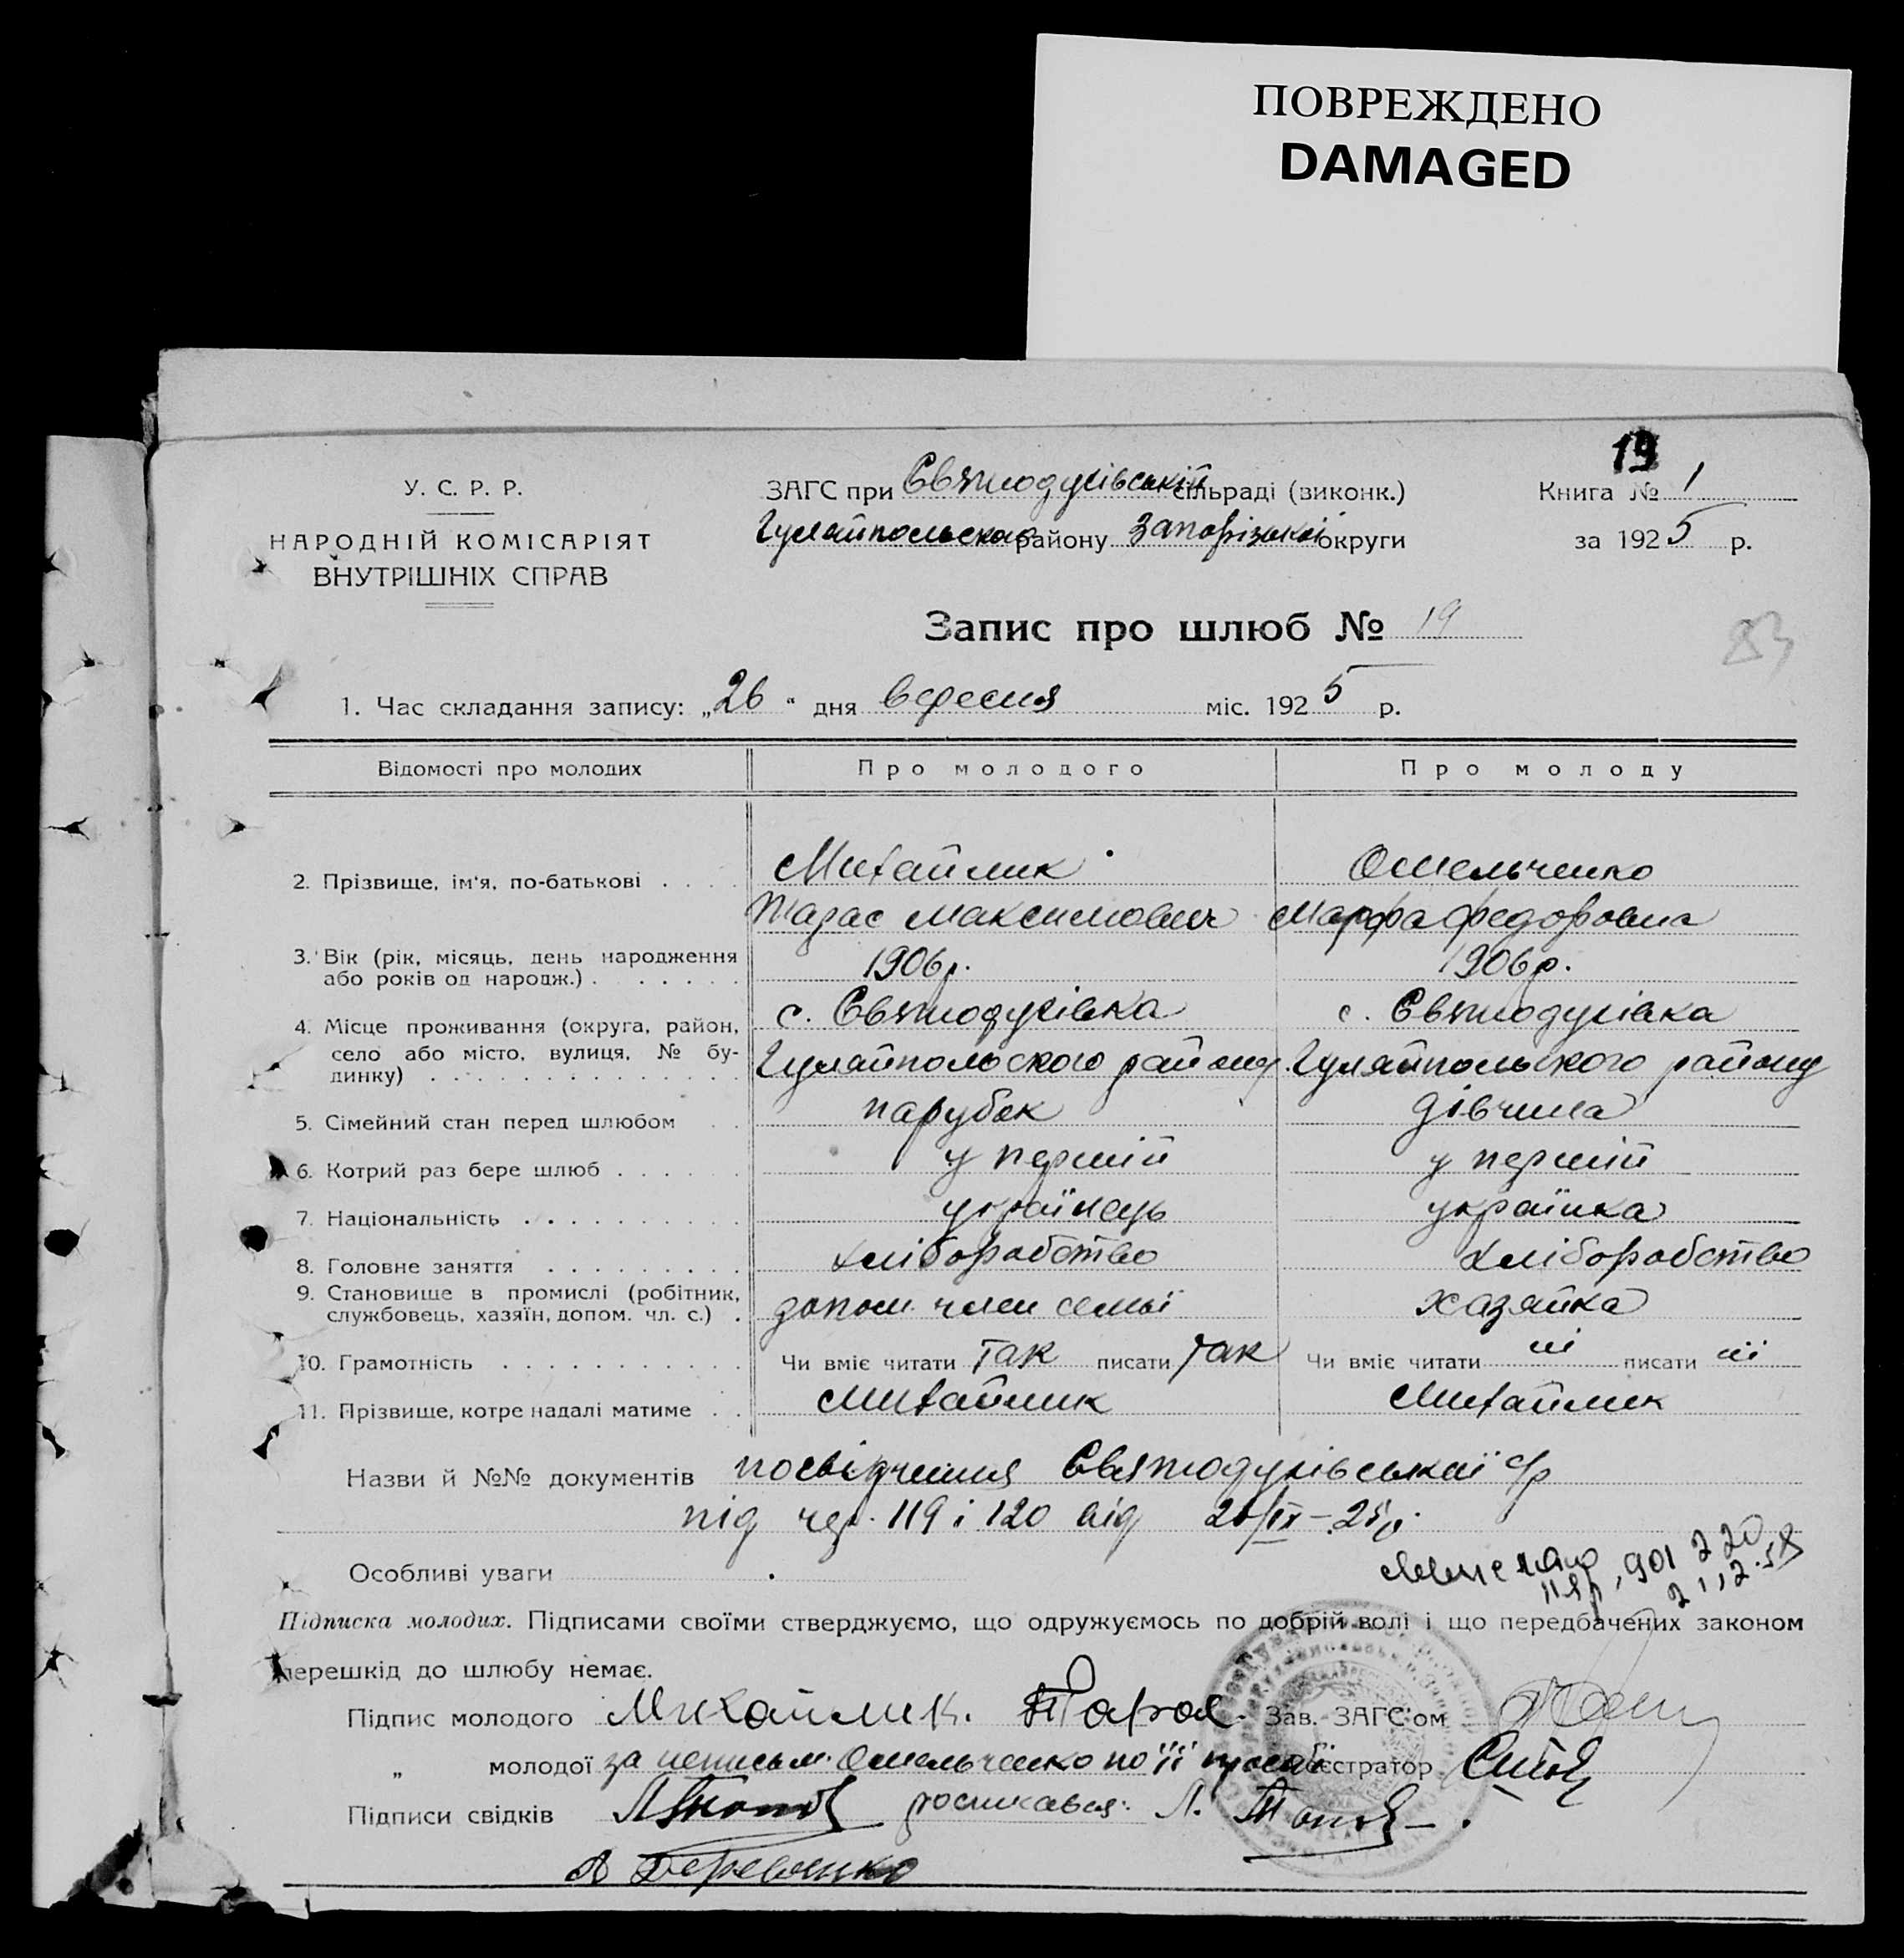 ПОВРЕЖДЕНО
DAMAGED
19
У. С. Р. Р.
НАРОДНІЙ КОМІСАРІЯТ
ВНУТРІШНІХ СПРАВ
ЗАГС при Святодухівській сільраді (виконк.)
Гуляйпольского району Запорізької округи
Книга № 1
за 1925 р.
Запис про шлюб № 19
83
1. Час складання запису: „26“ дня вересня міс. 1925 р.
Відомості про молодих Про молодого Про молоду
2. Прізвище, ім'я, по-батькові . . . . Михайлик Омельченко
Тарас Максимович Марфа Федоровна
3. Вік (рік, місяць, день народження 1906 р. 1906 р.
або років од народж.) . . . . . . .
4. Місце проживання (округа, район, с. Святодухівка с. Святодухівка
село або місто, вулиця, № бу- Гуляйпольского району Гуляйпольского району
динку) . . . . . . . . . . . . . .
5. Сімейний стан перед шлюбом . . парубок дівчина
6. Котрий раз бере шлюб . . . . . . у перший у перший
7. Національність . . . . . . . . . . українець українка
8. Головне заняття . . . . . . . . . хліборобство хліборобство
9. Становище в промислі (робітник, допом. член семьї хазяйка
службовець, хазяїн, допом. чл. с.) .
10. Грамотність . . . . . . . . . . . Чи вміє читати так писати так Чи вміє читати ні писати ні
11. Прізвище, котре надалі матиме . . Михайлик Михайлик
Назви й №№ документів посвідчення Святодухівської с/р
під чр. 119 і 120 від 26/IX–25 р.
Особливі уваги
901 220
Підписка молодих. Підписами своїми стверджуємо, що одружуємось по добрій волі і що передбачених законом
перешкід до шлюбу немає.
Підпис молодого Михайлик. Тарас. Зав. ЗАГС'ом
„ молодої за неписьм. Омельченко по її просьбі
Підписи свідків росписався: Л.